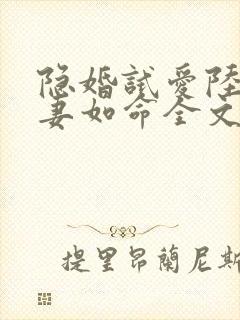 隐婚試愛陸
妻如命全文
提里昂蘭尼斯